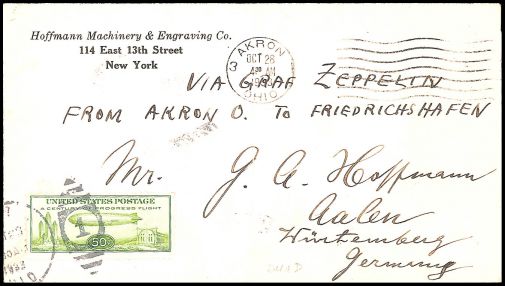 Hoffmann Machinery & Engraving Co.
114 East 13th Street
New York
3 AKRON
OCT 28
4 30 AM
OHIO
VIA GRAF ZEPPELIN
FROM AKRON O. TO FRIEDRICHSHAFEN
Mr. G. A. Hoffmann
Aalen
Würtemberg
Germany
UNITED STATES POSTAGE
A CENTURY OF PROGRESS FLIGHT
50¢
1